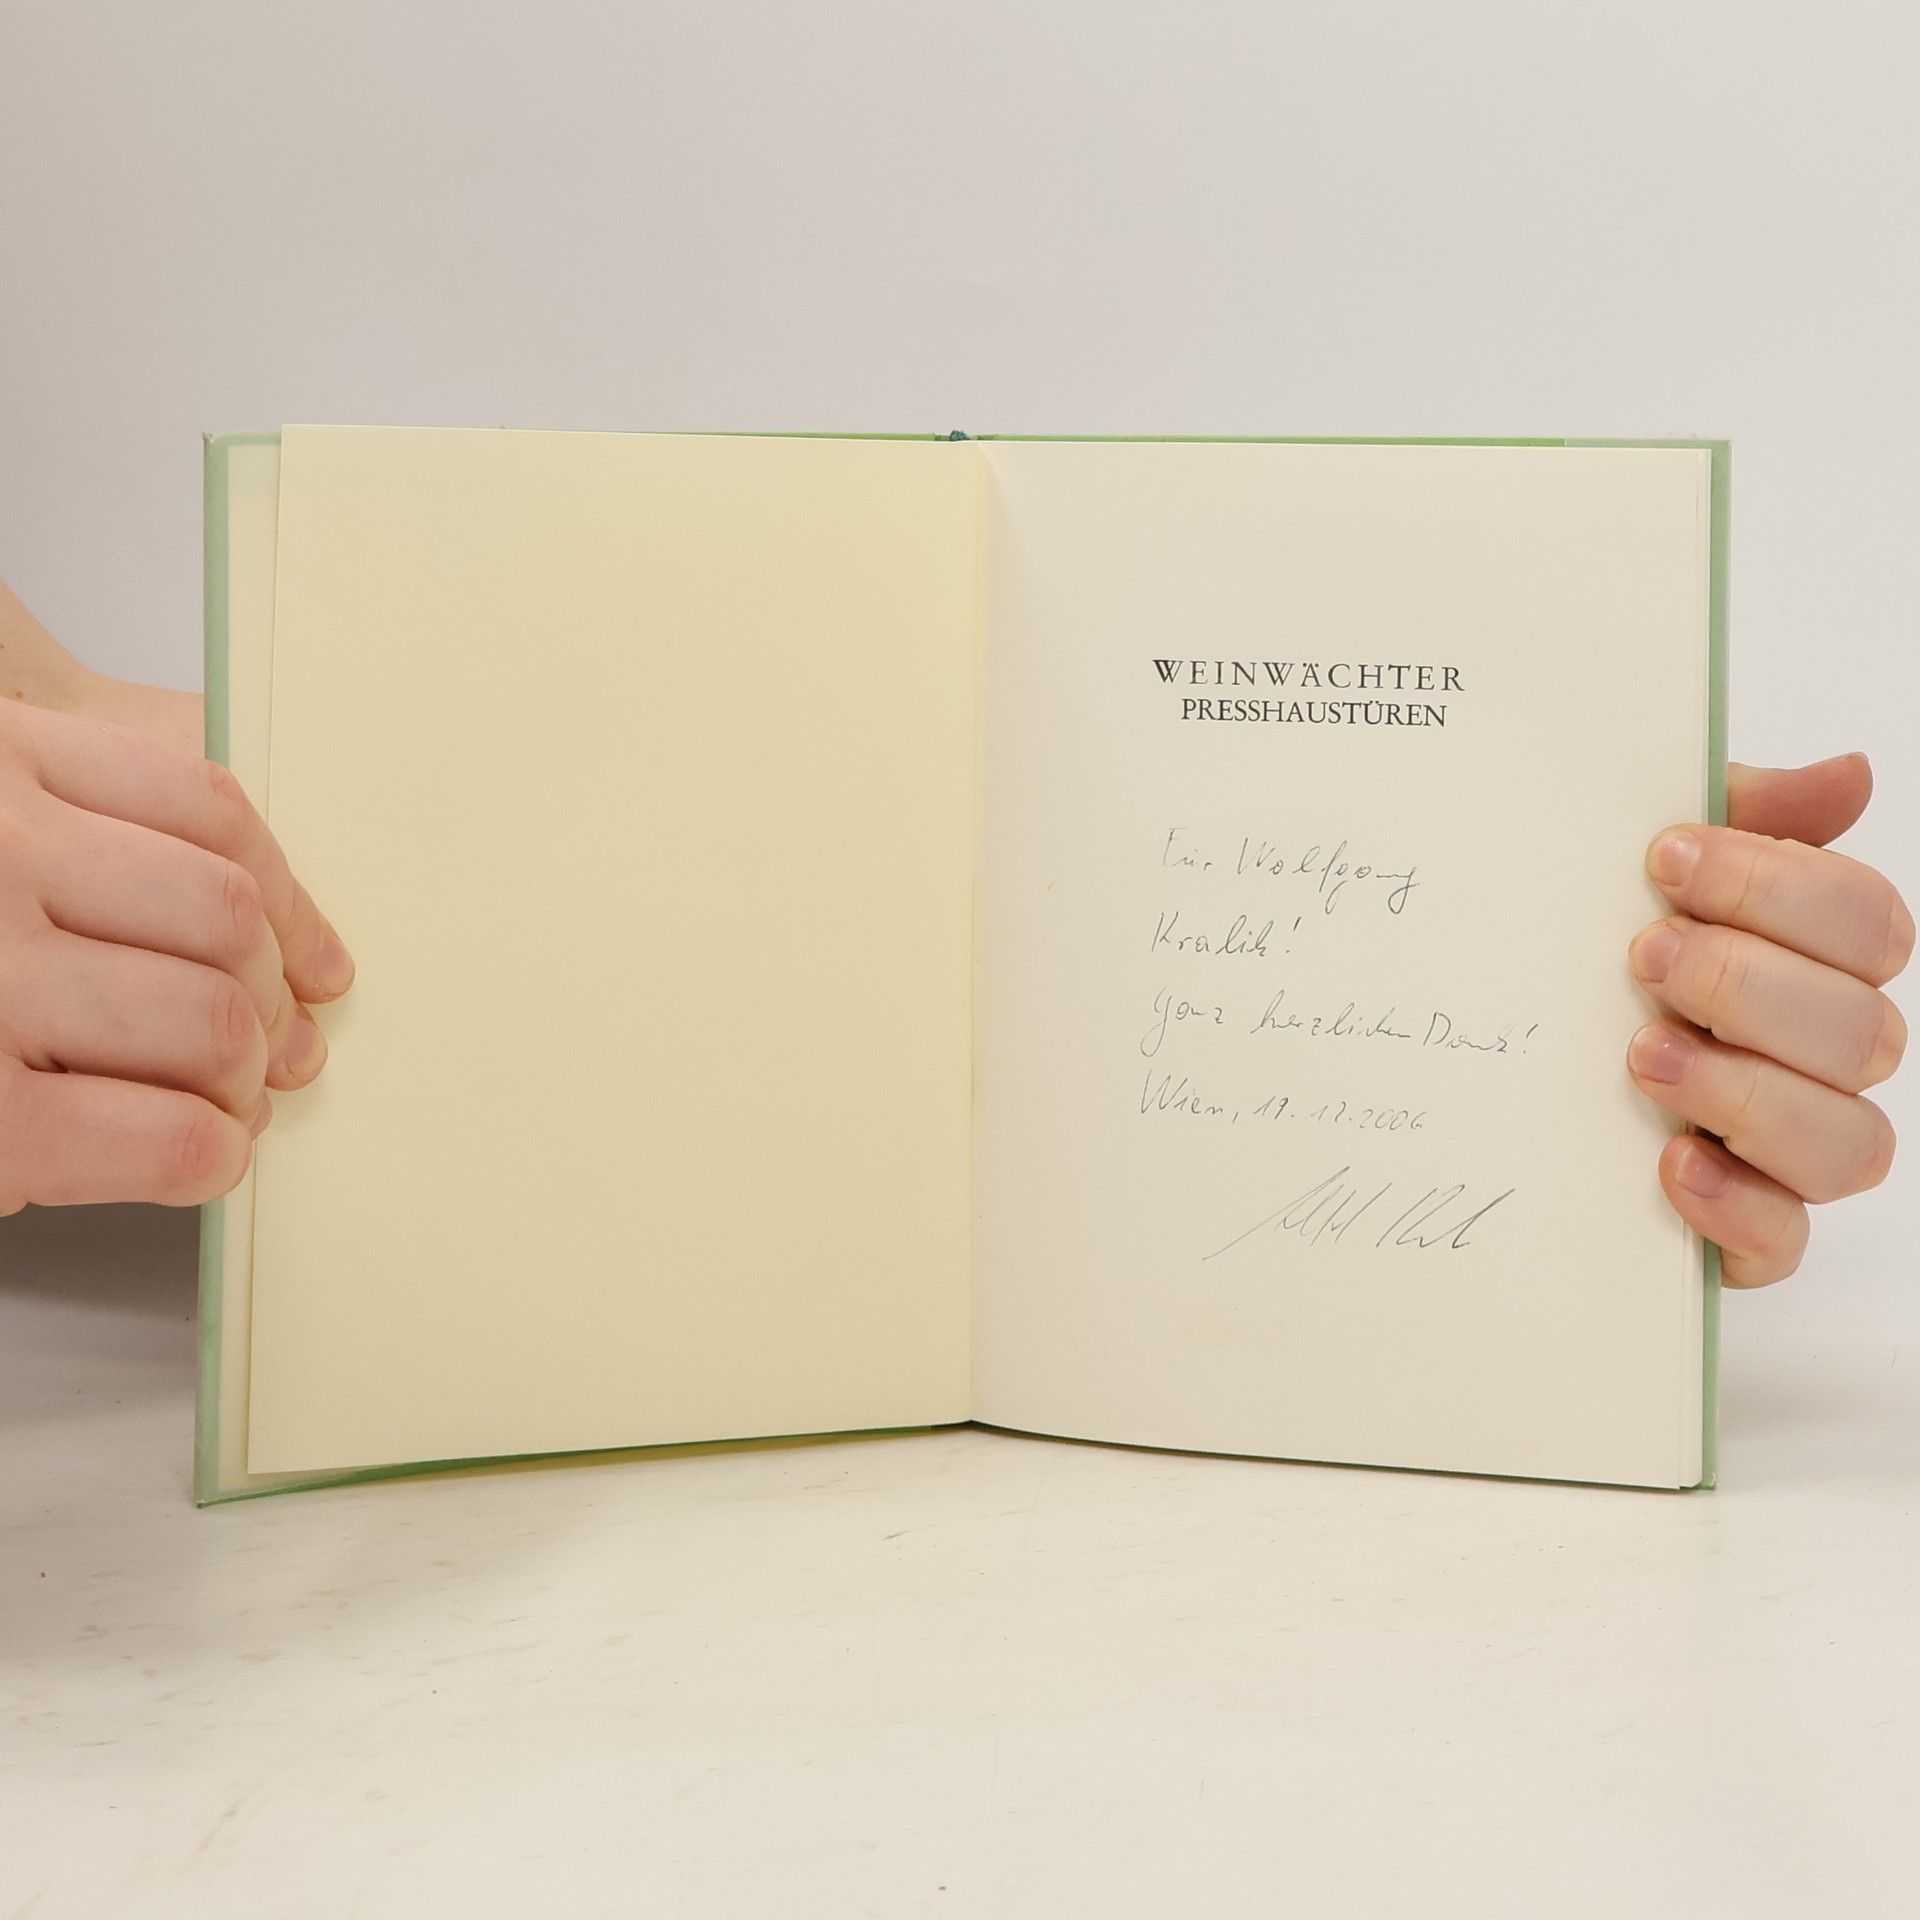 WEINWÄCHTER
PRESSHAUSTÜREN
Für Wolfgang
Kralik!
Ganz herzlichen Dank!
Wien, 19.12.2006